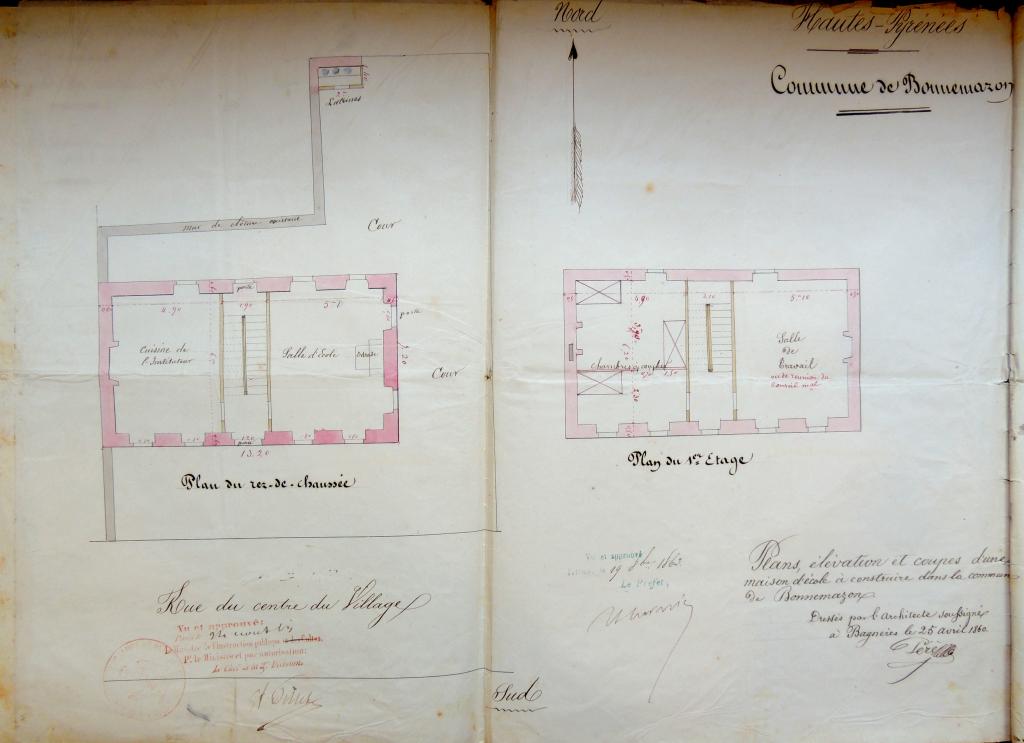 Nord
Hautes-Pyrénées
Commune de Bonnemazon
1.60
2.
Latrines
mur de clôture existant
Cour
porte
4.90
1.90
5.10
porte
Cuisine de
l'Instituteur
Salle d'École
Estrade
5.20
Cour
1.20
porte
13.20
Plan du rez-de-chaussée
4.90
2.10
5.10
Chambres à coucher
Salle
de
Travail
ou de réunion du
Conseil mal
Plan du 1er Etage
Rue du centre du Village
Vu et approuvé:
de l'Instruction publique et des Cultes,
P. le Ministre et par autorisation:
Le Chef de la Division
Vu et approuvé
le 19 8bre 1860.
Le Préfet,
Plans, élévation et coupes d'une
maison d'école à construire dans la commune
de Bonnemazon
Dressés par l'Architecte soussigné
à Bagnères le 25 avril 1860.
Sud